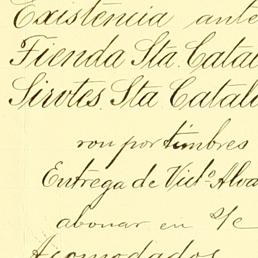 Existencia ante
Tienda Sta. Catal
Sirotes. Sta Catali
ron por timbres
Entrega de Vict.o Alva
abonar en %c
Acomodados